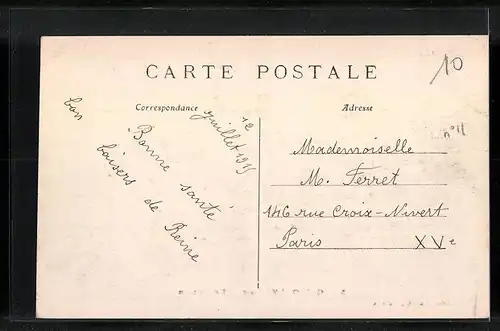 CARTE POSTALE
10
Correspondance
Adresse
12
juillet 1915
bon
Bonne santé
baisers de Reine
n° 11
Mademoiselle
M. Ferret
146 rue Croix-Nivert
Paris XVe